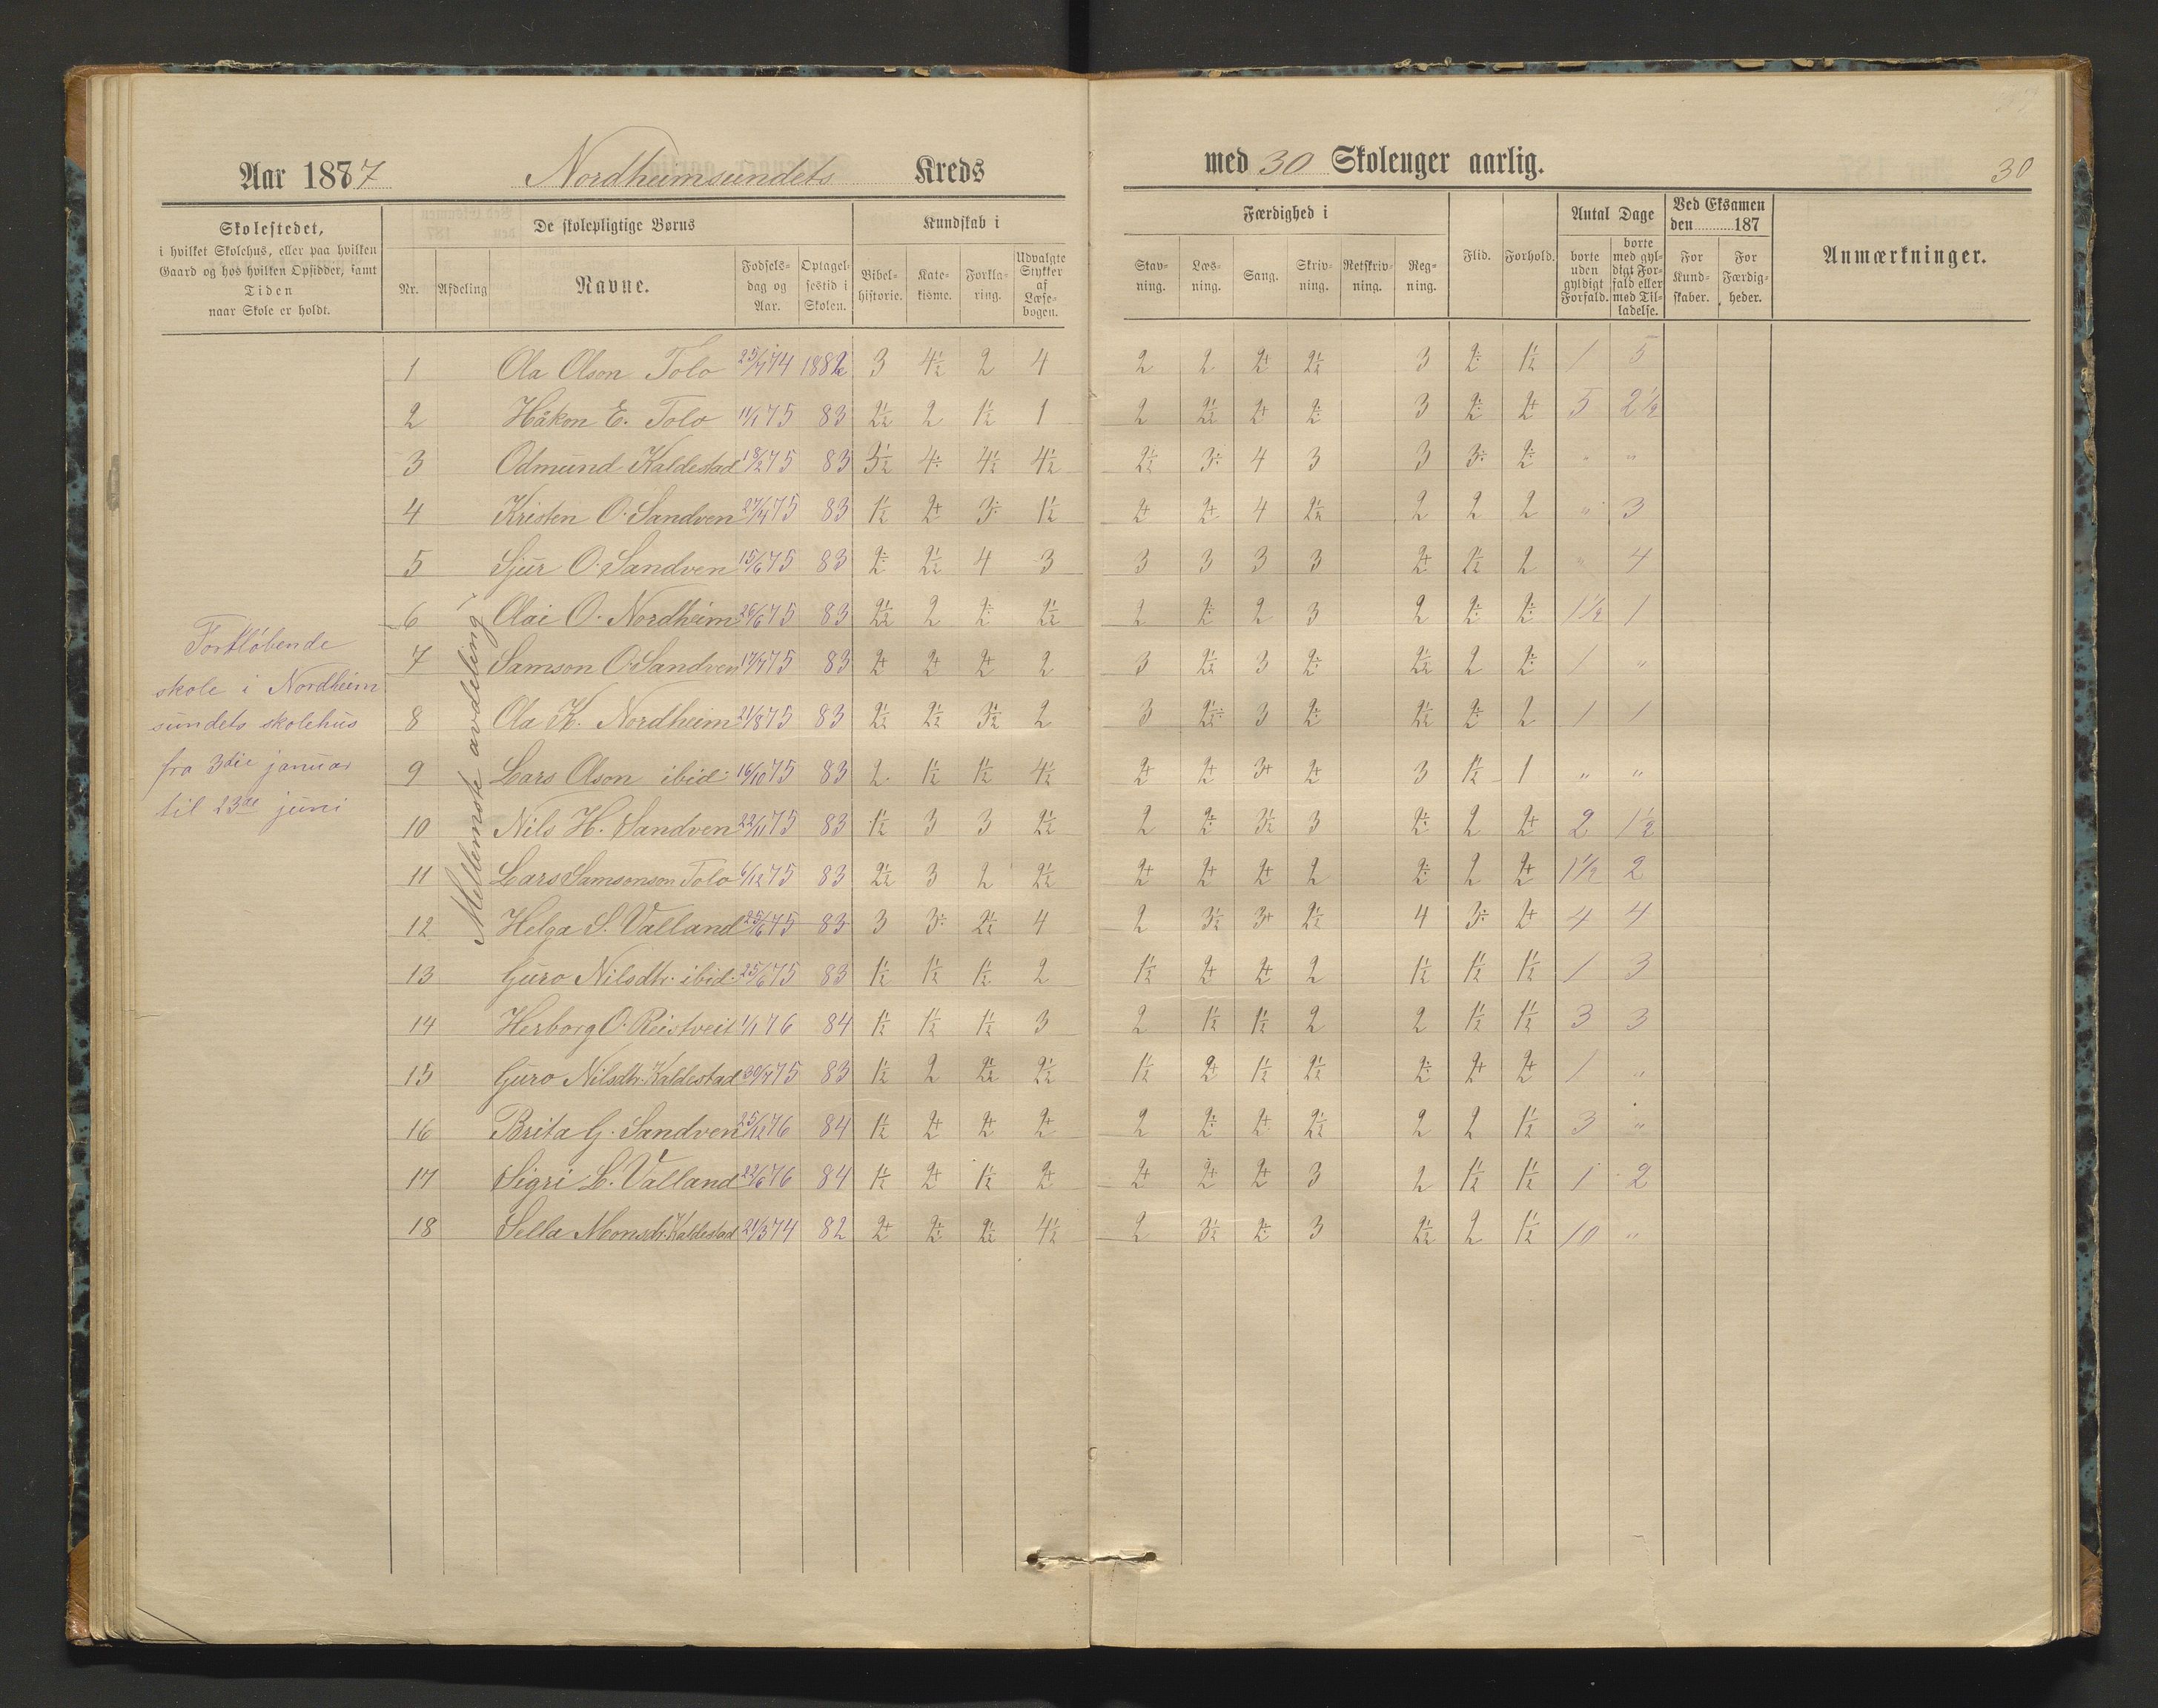 Aar 1887 Nordheimsundets Kreds
med 30 Skoleuger aarlig.
30
Skolestedet,
i hvilket Skolehus, eller paa hvilken
Gaard og hos hvilken Opsidder, samt
Tiden
naar Skole er holdt.
De skolepligtige Børns
Nr. Afdeling Navne.
Fødsels-
dag og
Aar.
Optagel-
sestid i
Skolen.
Kundskab i
Bibel-
historie.
Kate-
kisme.
Forkla-
ring.
Udvalgte
Stykker
af
Læse-
bogen.
Færdighed i
Stav-
ning.
Læs-
ning.
Sang.
Skriv-
ning.
Retskriv-
ning.
Reg-
ning.
Flid.
Forhold.
Antal Dage
borte
uden
gyldigt
Forfald.
borte
med gyl-
digt For-
fald eller
med Til-
ladelse.
Ved Eksamen
den 187
For
Kund-
skaber.
For
Færdig-
heder.
Anmærkninger.
Fortløbende
skole i Nordheim
sundets skolehus
fra 3die januar
til 23de juni
Mellemste avdeling
1 Ola Olson Tolo 25/7 74 1882 3 4½ 2 4 2 2 2+ 2½ 3 2÷ 1½ 1 5
2 Håkon E. Tolo 11/1 75 83 2½ 2 1½ 1 2 2½ 2+ 2÷ 3 2÷ 2+ 5 2½
3 Odmund Kaldestad 18/2 75 83 3½ 4÷ 4½ 4½ 2½ 3÷ 4 3 3 3÷ 2÷ " "
4 Kristen O. Sandven 27/4 75 83 1½ 2+ 3÷ 1½ 2+ 2+ 4 2½ 2 2 2 " 3
5 Sjur O. Sandven 15/6 75 83 2÷ 2½ 4 3 3 3 3 3 2+ 1½ 2 " 4
6 Olai O. Nordheim 26/6 75 83 2½ 2 2÷ 2½ 2 2÷ 2 3 2 2÷ 2÷ 1½ 1
7 Samson O. Sandven 17/7 75 83 2+ 2+ 2+ 2 3 2½ 3 2÷ 2½ 2 2÷ 1 "
8 Ola K. Nordheim 21/8 75 83 2½ 2½ 3½ 2 3 2½÷ 3 2÷ 2½ 2÷ 2 1 1
9 Lars Olson ibid. 16/10 75 83 2 1½ 1½ 4½ 2+ 2+ 3+ 2+ 3 1½ 1 " "
10 Nils H. Sandven 22/11 75 83 1½ 3 3 2½ 2 2÷ 3½ 3 2÷ 2 2+ 2 1½
11 Lars Samsonson Tolo 6/12 75 83 2½ 3 2 2½ 2+ 2+ 2+ 2 2÷ 2 2+ 1½ 2
12 Helga S. Valland 25/6 75 83 3 3÷ 2½ 4 2 3½ 3+ 2½ 4 3÷ 2+ 4 4
13 Guro Nilsdtr. ibid. 25/6 75 83 1½ 1½ 1½ 2 1½ 2+ 2+ 2 1½ 1½ 1½ 1 3
14 Herborg O. Reistveit 1/1 76 84 1½ 1½ 1½ 3 2 1½ 1½ 2 2 1½ 1½ 3 3
15 Guro Nilsdtr. Kaldestad 30/7 75 83 1½ 2 2½ 2½ 1½ 2+ 1½ 2½ 2÷ 2+ 2+ 1 "
16 Brita G. Sandven 25/12 76 84 1½ 2+ 2+ 2+ 2 2÷ 2+ 2½ 2 2 1½ 3 "
17 Sigri L. Valland 22/6 76 84 1½ 2+ 1½ 2+ 2+ 2+ 2+ 3 2 1½ 1½ 1 2
18 Sella Monsdtr. Kaldestad 21/3 74 82 2+ 2÷ 2½ 4½ 2 3½ 2÷ 3 2½ 2 1½ 10 "